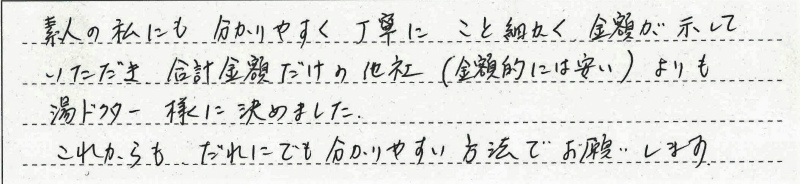 素人の私にも 分かりやすく 丁寧に こと細かく 金額が示して
いただき 合計金額だけの他社(金額的には安い)よりも
湯ドクター 様に決めました.
これからも だれにでも分かりやすい方法で お願いします